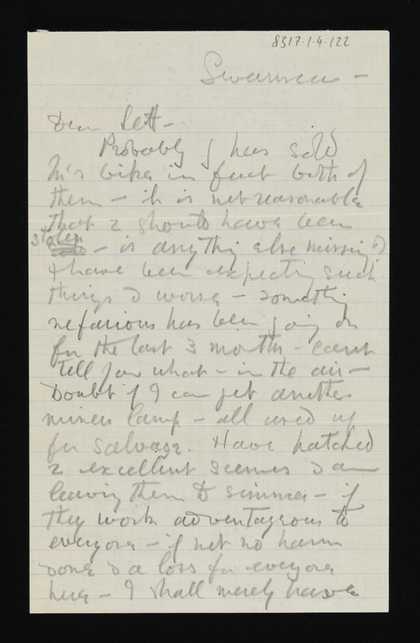 8317.1.4.122
Swansea -
Dear Lett -
Probably J has sold
his bikes in fact both of
them - it is not reasonable
that 2 should have been
stolen - is anything else missing?
I have been expecting such
things & worse - something
nefarious has been going on
for the last 3 months - can't
tell you what - in the air -
Doubt if I can get another
miners lamp - all used up
for salvage. Have hatched
2 excellent scemes & am
leaving them to simmer - if
they work advantageous to
everyone - if not no harm
done & a loss for everyone
here - I shall merely have